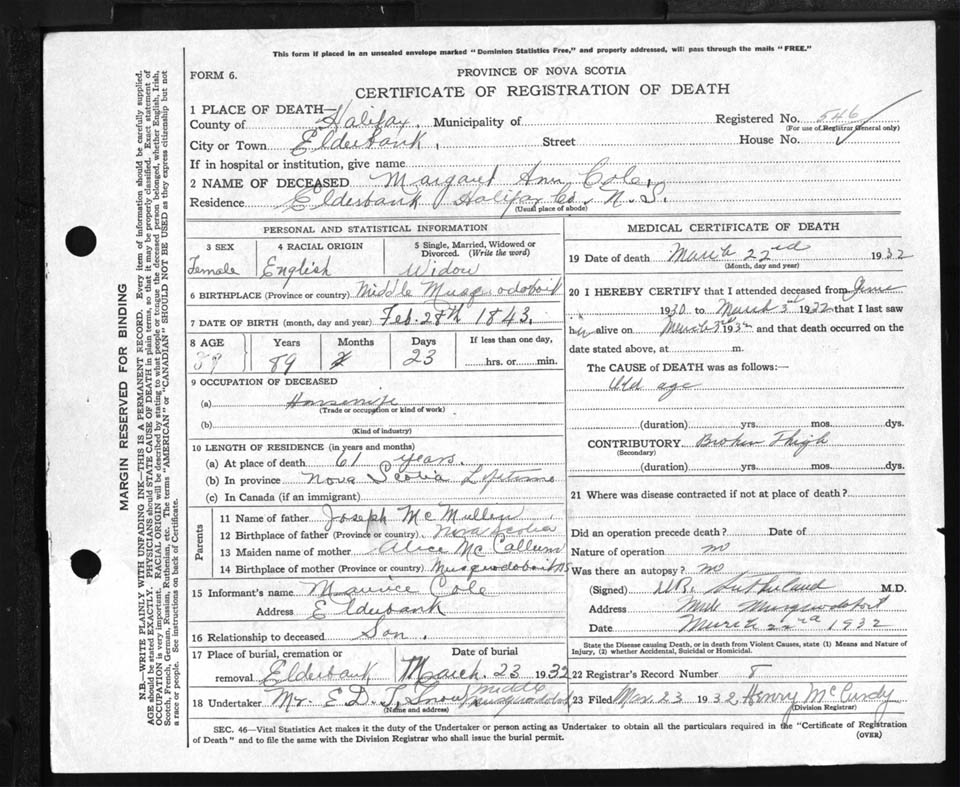 This form if placed in an unsealed envelope marked "Dominion Statistics Free," and properly addressed, will pass through the mails "FREE."
FORM 6.
PROVINCE OF NOVA SCOTIA
CERTIFICATE OF REGISTRATION OF DEATH
1 PLACE OF DEATH—
County of Halifax, Municipality of
Registered No. 546
(For use of Registrar General only)
City or Town Elderbank, Street House No.
If in hospital or institution, give name
2 NAME OF DECEASED Margaret Ann Cole,
Residence Elderbank Halifax Co., N. S.
(Usual place of abode)
PERSONAL AND STATISTICAL INFORMATION
3 SEX 4 RACIAL ORIGIN 5 Single, Married, Widowed or Divorced. (Write the word)
Female English Widow
6 BIRTHPLACE (Province or country) Middle Musquodoboit
7 DATE OF BIRTH (month, day and year) Feb. 28th 1843.
8 AGE Years Months Days If less than one day,
89 89 23 hrs. or min.
9 OCCUPATION OF DECEASED
(a) Housewife
(Trade or occupation or kind of work)
(b)
(Kind of industry)
10 LENGTH OF RESIDENCE (in years and months)
(a) At place of death 61 years.
(b) In province Nova Scotia Lifetime
(c) In Canada (if an immigrant)
Parents
11 Name of father Joseph McMullen
12 Birthplace of father (Province or country) Nova Scotia
13 Maiden name of mother Alice McCallum
14 Birthplace of mother (Province or country) Musquodoboit NS
15 Informant's name Maurice Cole
Address Elderbank
16 Relationship to deceased Son.
17 Place of burial, cremation or removal Elderbank
Date of burial March. 23 1932
18 Undertaker Mr. E D. Middle Musquodoboit
(Name and address)
MEDICAL CERTIFICATE OF DEATH
19 Date of death March 22nd 1932
(Month, day and year)
20 I HEREBY CERTIFY that I attended deceased from June
1930 to March 3rd 1932 that I last saw
her alive on March 3rd 1932 and that death occurred on the
date stated above, at m.
The CAUSE of DEATH was as follows:—
Old age
(duration) yrs. mos. dys.
CONTRIBUTORY Broken Thigh
(Secondary)
(duration) yrs. mos. dys.
21 Where was disease contracted if not at place of death?
Did an operation precede death? Date of
Nature of operation no
Was there an autopsy? no
(Signed) D.R. Sutherland M.D.
Address Musquodoboit
Date March 22nd 1932
State the Disease causing Death, or in death from Violent Causes, state (1) Means and Nature of Injury, (2) whether Accidental, Suicidal or Homicidal.
22 Registrar's Record Number 8
23 Filed Mar. 23 1932 Henry McCurdy
(Division Registrar)
SEC. 46—Vital Statistics Act makes it the duty of the Undertaker or person acting as Undertaker to obtain all the particulars required in the "Certificate of Registration
of Death" and to file the same with the Division Registrar who shall issue the burial permit.
(OVER)
MARGIN RESERVED FOR BINDING
N.B.—WRITE PLAINLY WITH UNFADING INK—THIS IS A PERMANENT RECORD. Every item of information should be carefully supplied.
AGE should be stated EXACTLY. PHYSICIANS should STATE CAUSE OF DEATH in plain terms, so that it may be properly classified. Exact statement of
OCCUPATION is very important. RACIAL ORIGIN will be described by stating to what people or tongue the deceased person belonged, whether English, Irish,
Scotch, French, German, Russian, Ruthenian, etc. The terms "AMERICAN" or "CANADIAN" SHOULD NOT BE USED as they express citizenship but not
a race or people. See instructions on back of Certificate.